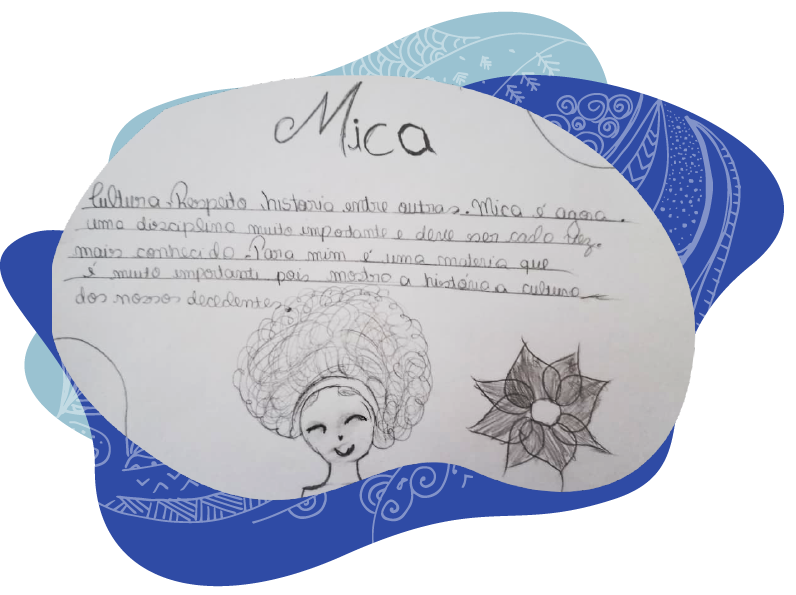 Mica
Cultura, Respeito, historia entre outras. Mica é agora.
uma disciplina muito importante e deve ser cada vez.
mais conhecido. Para mim é uma materia que
é muito importanti pois mostra a história a cultura
dos nossos decedentes.